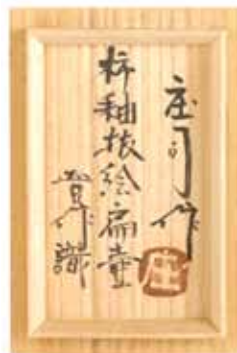 庄司作
柿釉抜絵扁壷
晋作識